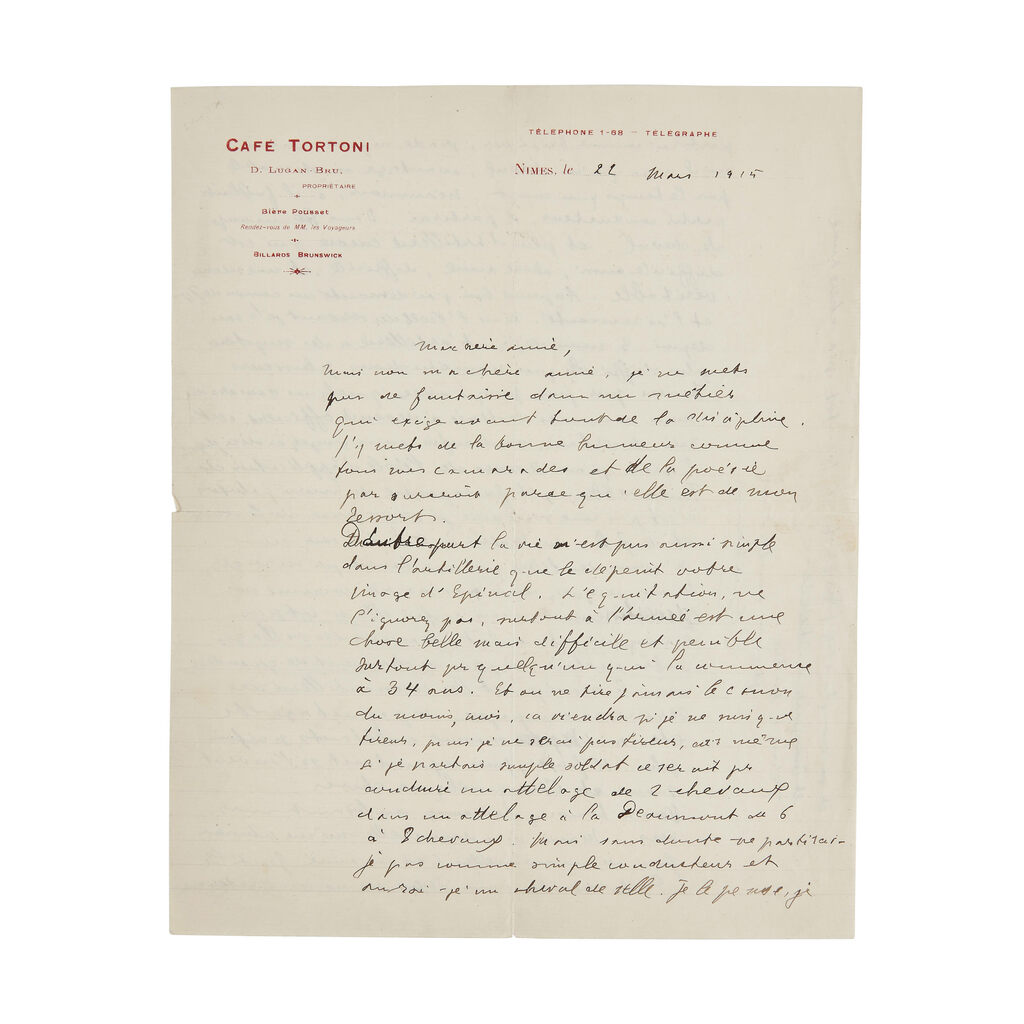 CAFÉ TORTONI
D. LUGAN-BRU,
PROPRIÉTAIRE
Bière Pousset
Rendez-vous de MM. les Voyageurs
BILLARDS BRUNSWICK
TÉLÉPHONE 1-68 — TÉLÉGRAPHE
NIMES, le 22 Mars 1915
Ma chère amie,
Mais non ma chère amie, je ne mets
pas de fantaisie dans un métier
qui exige avant tout de la discipline.
J'y mets de la bonne humeur comme
tous mes camarades et de la poésie
par surcroit parce qu'elle est de mon
ressort.
D'autre part la vie n'est pas aussi simple
dans l'artillerie que le dépeint votre
image d'Epinal. L'équitation, ne
l'ignorez pas, surtout à l'armée est une
chose belle mais difficile et pénible
surtout pr quelqu'un qui la commence
à 34 ans. Et on ne tire jamais le canon
du moins, moi, ça viendra si je ne suis que
tireur, mais je ne serai pas tireur, car même
si je partais simple soldat ce serait pr
conduire un attelage de 2 chevaux
dans un attelage à la Daumont de 6
à 8 chevaux. Mais sans doute ne partirai-
je pas comme simple conducteur et
aurai-je un cheval de selle. Je le pense, je